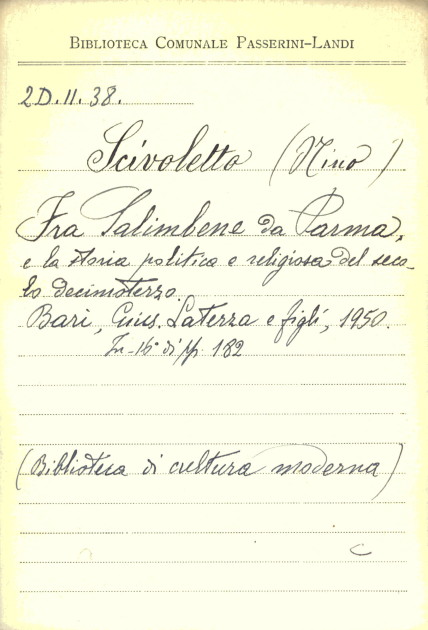 BIBLIOTECA COMUNALE PASSERINI-LANDI
2D.II.38.
Scivoletto (Nino)
Fra Salimbene da Parma,
e la storia politica e religiosa del seco-
lo decimoterzo.
Bari, Gius. Laterza e figli, 1950.
In-16° di pp. 182
(Biblioteca di cultura moderna)
C